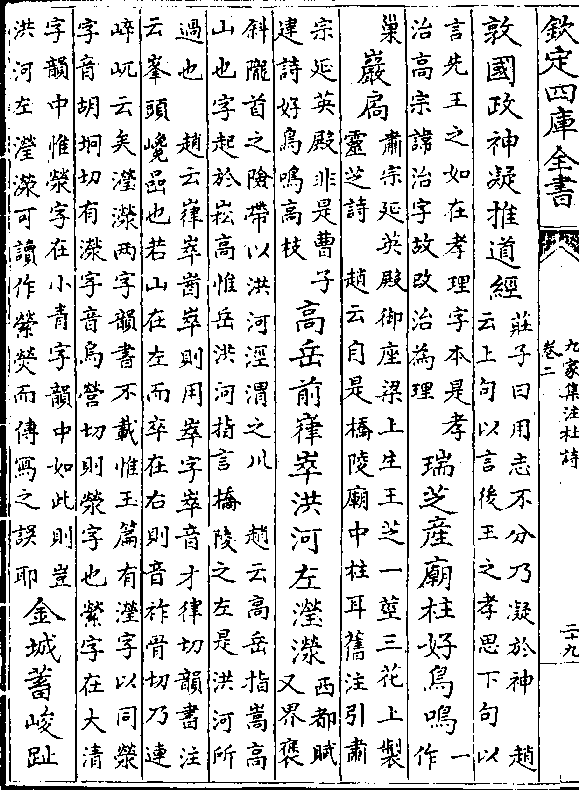 欽定四庫全書
九家集注杜詩
卷二
二十九
敦國政神凝推道經
莊子曰用志不分乃凝於神　趙
云上句以言後王之孝思下句以
言先王之如在孝理字本是孝
治高宗諱治字故改治為理
瑞芝産廟柱好鳥鳴
一
作
巢
巖扃
肅宗延英殿御座梁上生王芝一莖三花上製
靈芝詩　趙云自是橋陵廟中柱耳舊注引肅
宗延英殿非是曹子
建詩好鳥鳴高枝
高岳前嵂崒洪河左瀅濙
西都賦
又界褒
斜隴首之險帶以洪河涇渭之川　趙云高岳指嵩高
山也字起於崧高惟岳洪河指言橋陵之左是洪河所
過也　趙云嵂崒崷崒則用崒字崒音才律切韻書注
云峯頭巉嵒也若山在左而卒在右則音祚骨切乃連
崪屼云矣瀅濙两字韻書不載惟玉篇有瀅字以同滎
字音胡坰切有濙字音烏營切則滎字也縈字在大清
字韻中惟滎字在小青字韻中如此則豈
洪河左瀅濙可讀作縈熒而傳寫之誤耶
金城蓄峻趾